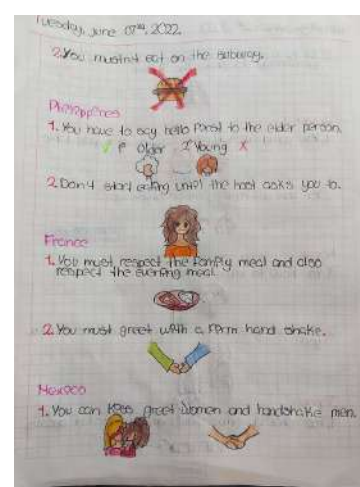 Tuesday, June 07th, 2022.
2. You mustn't eat on the subway.
Philippines
1. You have to say hello first to the elder person.
1º Older 2º Young X
2. Don't start eating until the host asks you to.
France
1. You must respect the family meal and also
respect the evening meal.
2. You must greet with a firm hand shake.
Mexico
1. You can kiss greet women and handshake men.